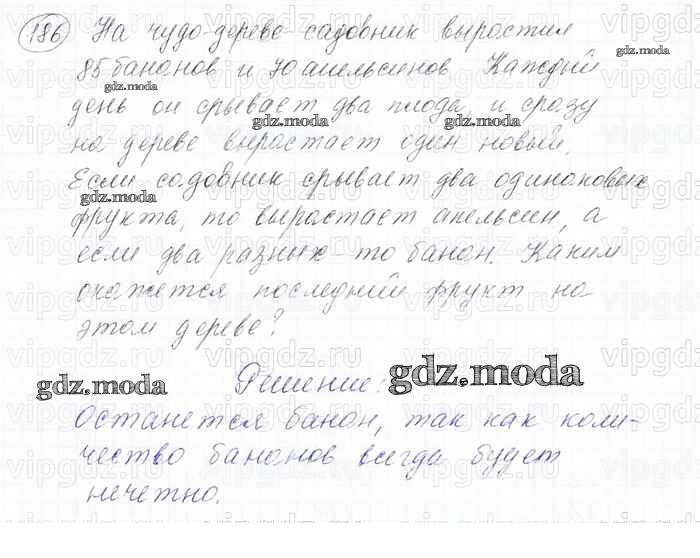 186 На чудо-дереве садовник вырастил
85 бананов и 70 апельсинов Каждый
день он срывает два плода, и сразу
на дереве вырастает один новый.
Если садовник срывает два одинаковых
фрукта, то вырастает апельсин, а
если два разных - то банан. Каким
окажется последний фрукт на
этом дереве?
Решение:
Останется банан, так как коли-
чество бананов всегда будет
нечетно.
gdz.moda
gdz.moda
gdz.moda
gdz.moda
gdz.moda
gdz.moda
gdz.moda
vipgdz.ru